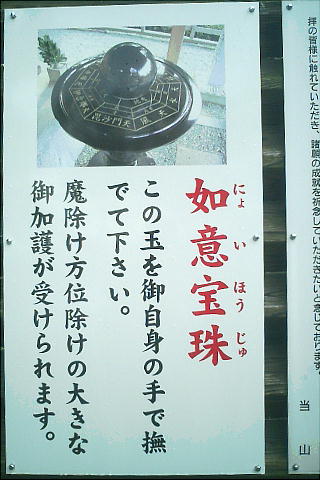 拝の皆様に触れていただき、諸願の成就を祈念していただきたいと念じております。
当山
如意宝珠
にょいほうじゅ
この玉を御自身の手で撫
でて下さい。
魔除け方位除けの大きな
御加護が受けられます。
毘沙門天